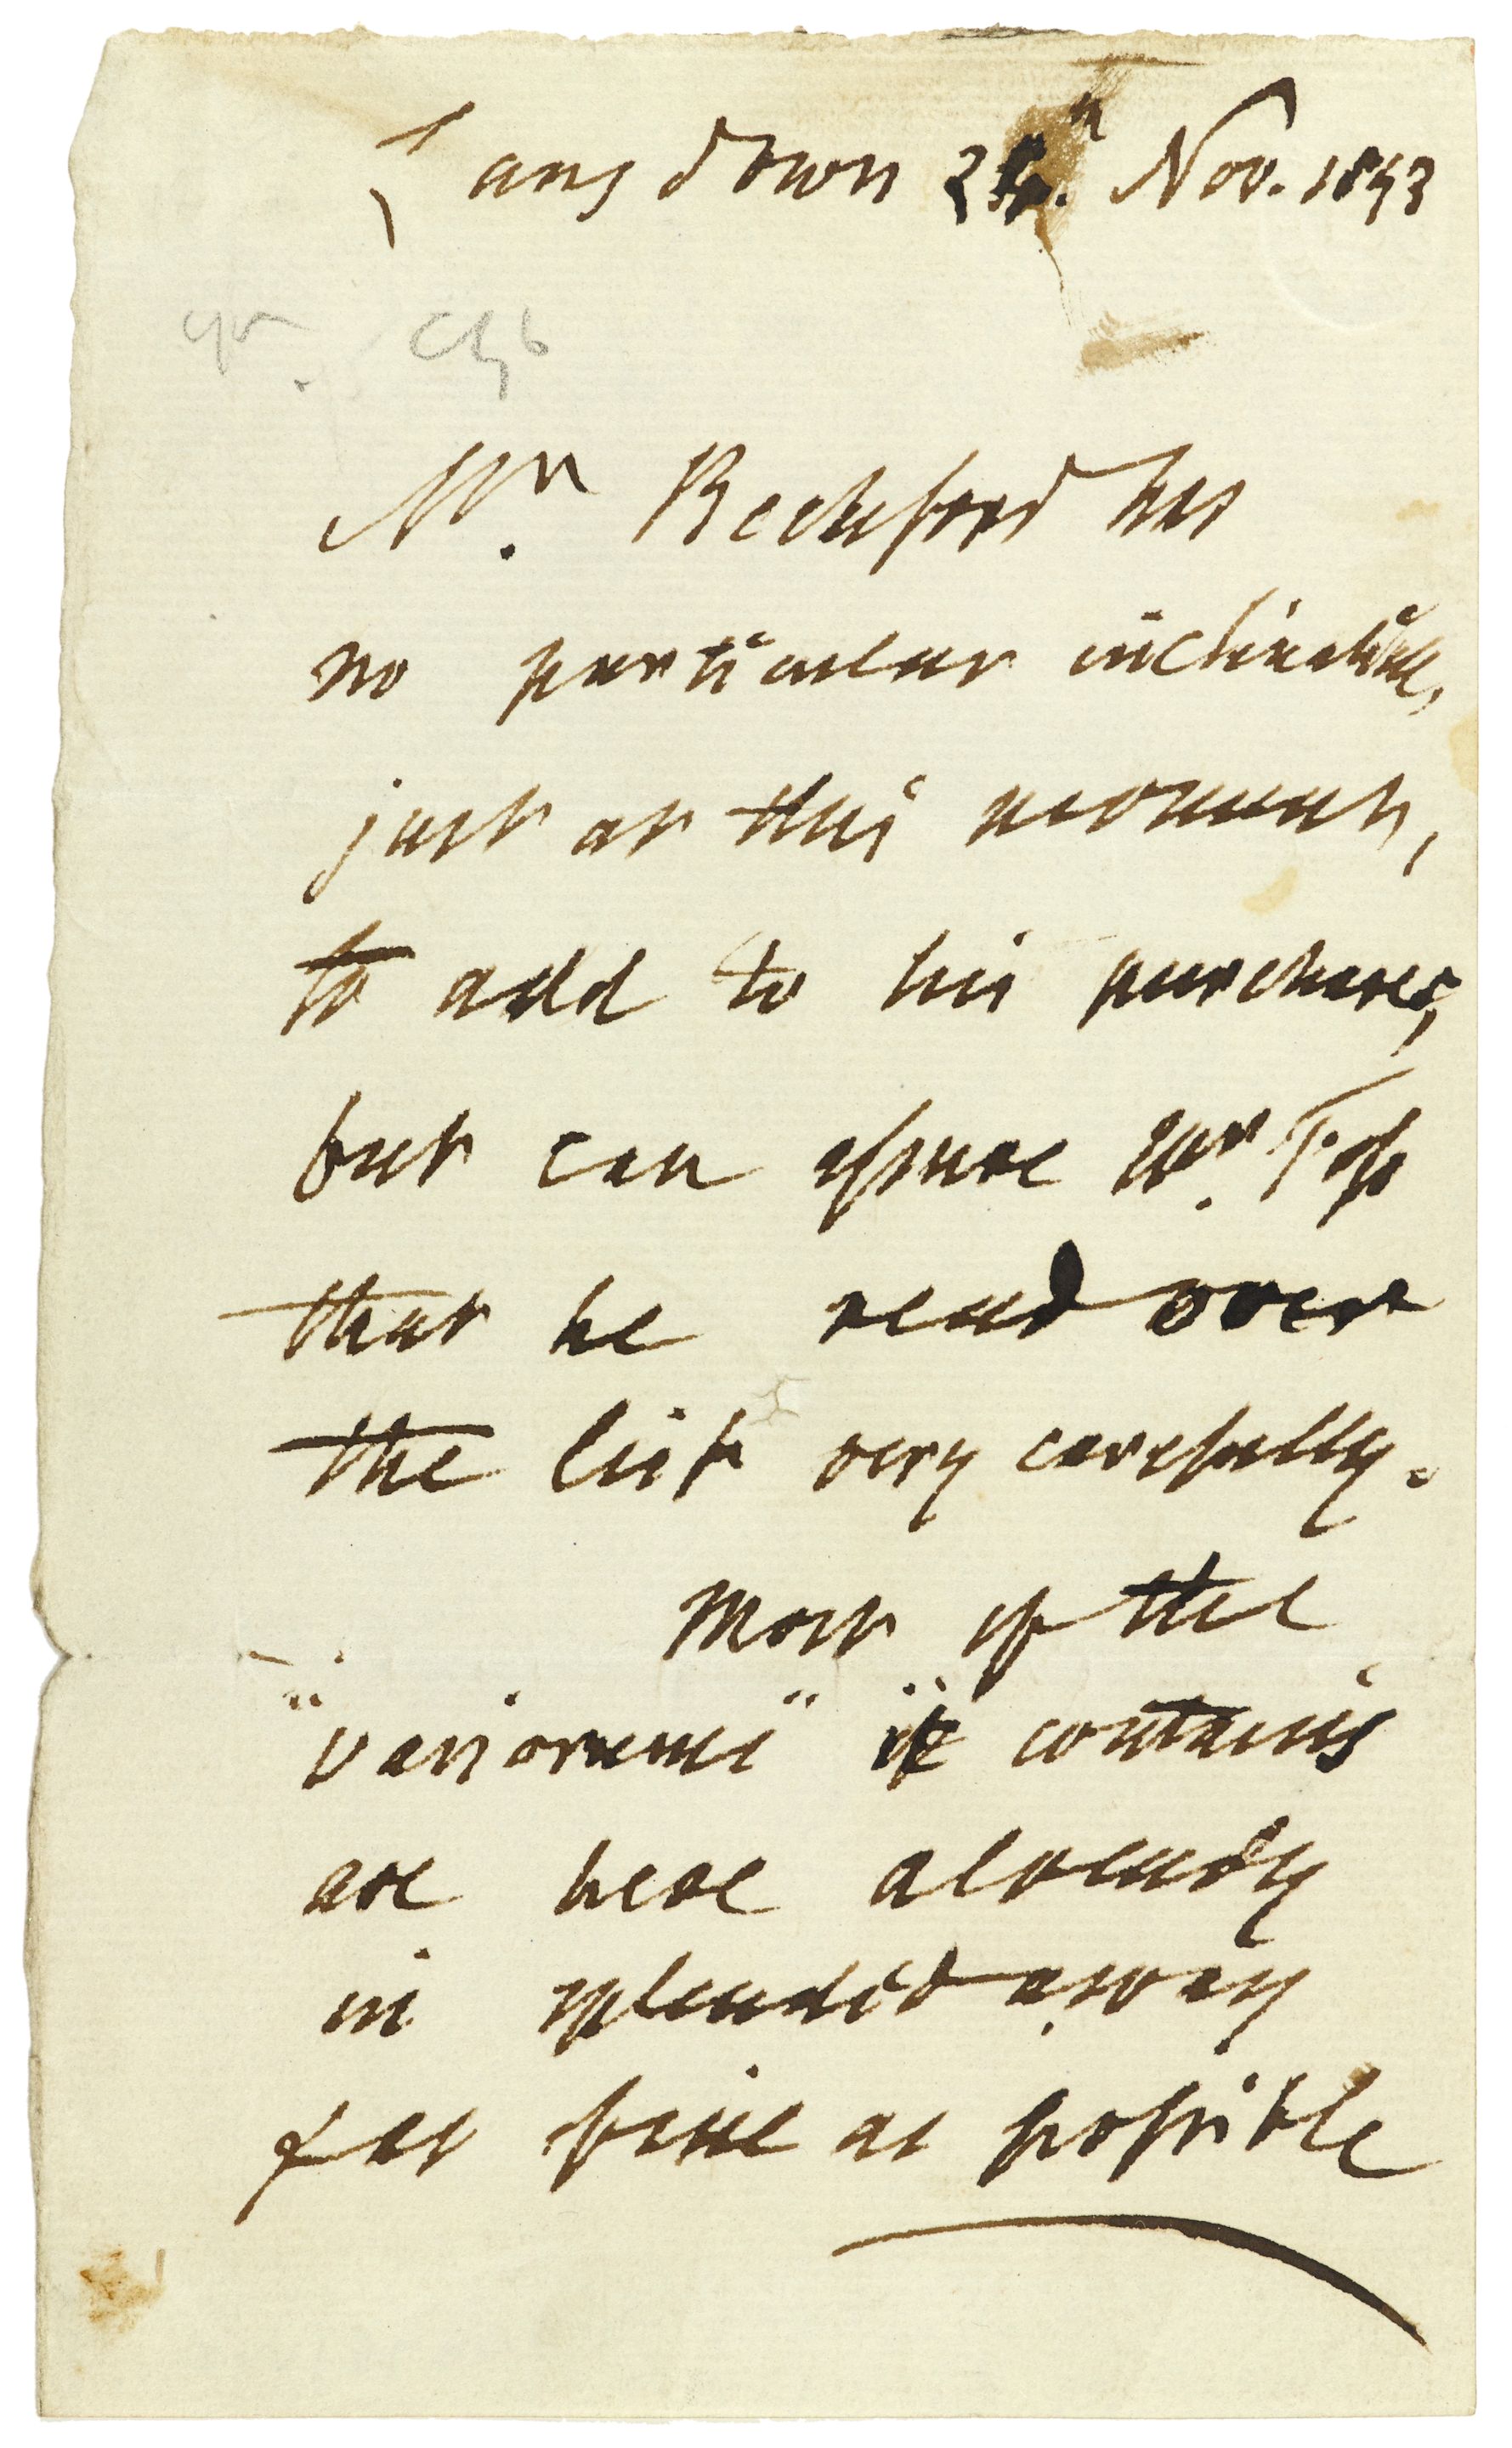 Lansdown Nov. 1843
Mr. Beckford has
no particular inclination,
just at this moment,
to add to his purchases,
but can assure Mr.
that he read over
the list very carefully.
Most of the
"variorums" it contains
are here already
in splendid array
& as fine as possible